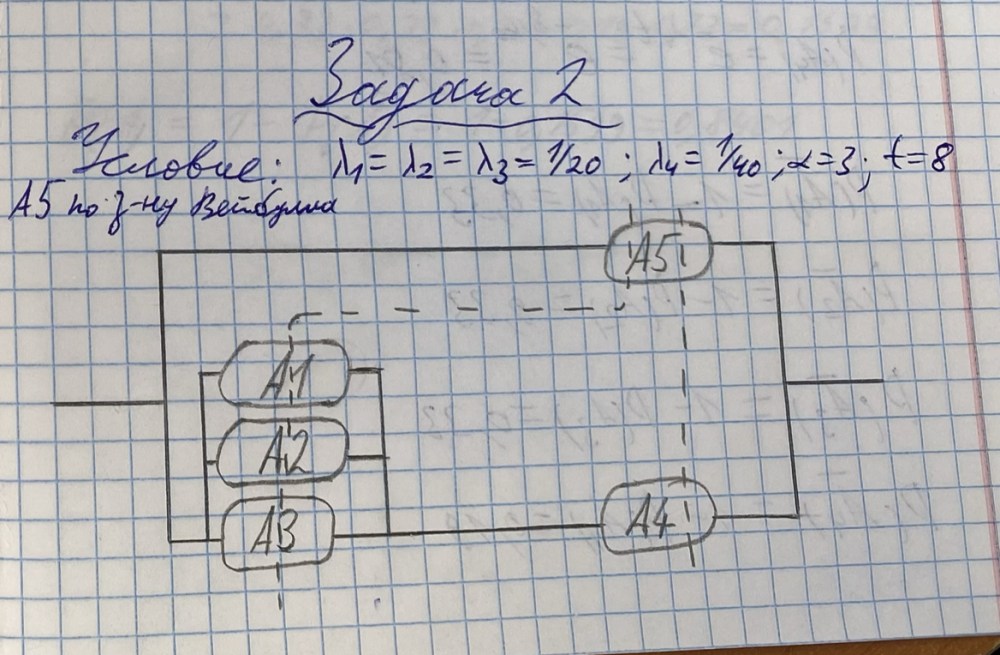 Задача 2
Условие: λ1 = λ2 = λ3 = 1/20 ; λ4 = 1/40 ; α=3 ; t=8
А5 по з-ну Вейбулла
А5
А1
А2
А3
А4